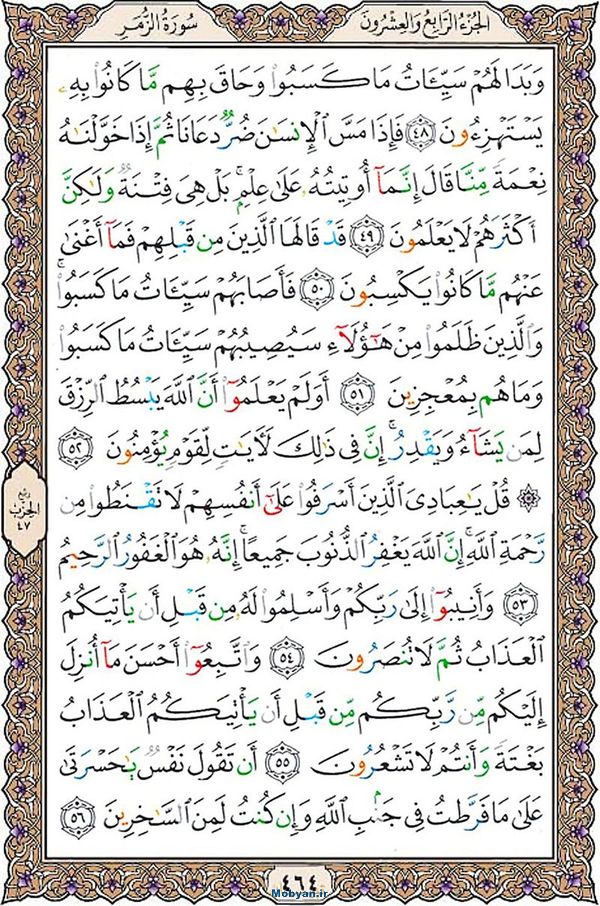 الجزء الرابع والعشرون
سورة الزمر
وَبَدَا لَهُمْ سَيِّئَاتُ مَا كَسَبُوا۟ وَحَاقَ بِهِم مَّا كَانُوا۟ بِهِۦ
يَسْتَهْزِءُونَ ﴿٤٨﴾ فَإِذَا مَسَّ ٱلْإِنسَٰنَ ضُرٌّ دَعَانَا ثُمَّ إِذَا خَوَّلْنَٰهُ
نِعْمَةً مِّنَّا قَالَ إِنَّمَآ أُوتِيتُهُۥ عَلَىٰ عِلْمٍۭ ۚ بَلْ هِىَ فِتْنَةٌ وَلَٰكِنَّ
أَكْثَرَهُمْ لَا يَعْلَمُونَ ﴿٤٩﴾ قَدْ قَالَهَا ٱلَّذِينَ مِن قَبْلِهِمْ فَمَآ أَغْنَىٰ
عَنْهُم مَّا كَانُوا۟ يَكْسِبُونَ ﴿٥٠﴾ فَأَصَابَهُمْ سَيِّئَاتُ مَا كَسَبُوا۟ ۚ
وَٱلَّذِينَ ظَلَمُوا۟ مِنْ هَٰٓؤُلَآءِ سَيُصِيبُهُمْ سَيِّئَاتُ مَا كَسَبُوا۟
وَمَا هُم بِمُعْجِزِينَ ﴿٥١﴾ أَوَلَمْ يَعْلَمُوٓا۟ أَنَّ ٱللَّهَ يَبْسُطُ ٱلرِّزْقَ
لِمَن يَشَآءُ وَيَقْدِرُ ۚ إِنَّ فِى ذَٰلِكَ لَءَايَٰتٍ لِّقَوْمٍ يُؤْمِنُونَ ﴿٥٢﴾
۞ قُلْ يَٰعِبَادِىَ ٱلَّذِينَ أَسْرَفُوا۟ عَلَىٰٓ أَنفُسِهِمْ لَا تَقْنَطُوا۟ مِن
رَّحْمَةِ ٱللَّهِ ۚ إِنَّ ٱللَّهَ يَغْفِرُ ٱلذُّنُوبَ جَمِيعًا ۚ إِنَّهُۥ هُوَ ٱلْغَفُورُ ٱلرَّحِيمُ
﴿٥٣﴾ وَأَنِيبُوٓا۟ إِلَىٰ رَبِّكُمْ وَأَسْلِمُوا۟ لَهُۥ مِن قَبْلِ أَن يَأْتِيَكُمُ
ٱلْعَذَابُ ثُمَّ لَا تُنصَرُونَ ﴿٥٤﴾ وَٱتَّبِعُوٓا۟ أَحْسَنَ مَآ أُنزِلَ
إِلَيْكُم مِّن رَّبِّكُم مِّن قَبْلِ أَن يَأْتِيَكُمُ ٱلْعَذَابُ
بَغْتَةً وَأَنتُمْ لَا تَشْعُرُونَ ﴿٥٥﴾ أَن تَقُولَ نَفْسٌ يَٰحَسْرَتَىٰ
عَلَىٰ مَا فَرَّطتُ فِى جَنۢبِ ٱللَّهِ وَإِن كُنتُ لَمِنَ ٱلسَّٰخِرِينَ ﴿٥٦﴾
ربع
الحزب
٤٧
٤٦٤
Mobyan.ir